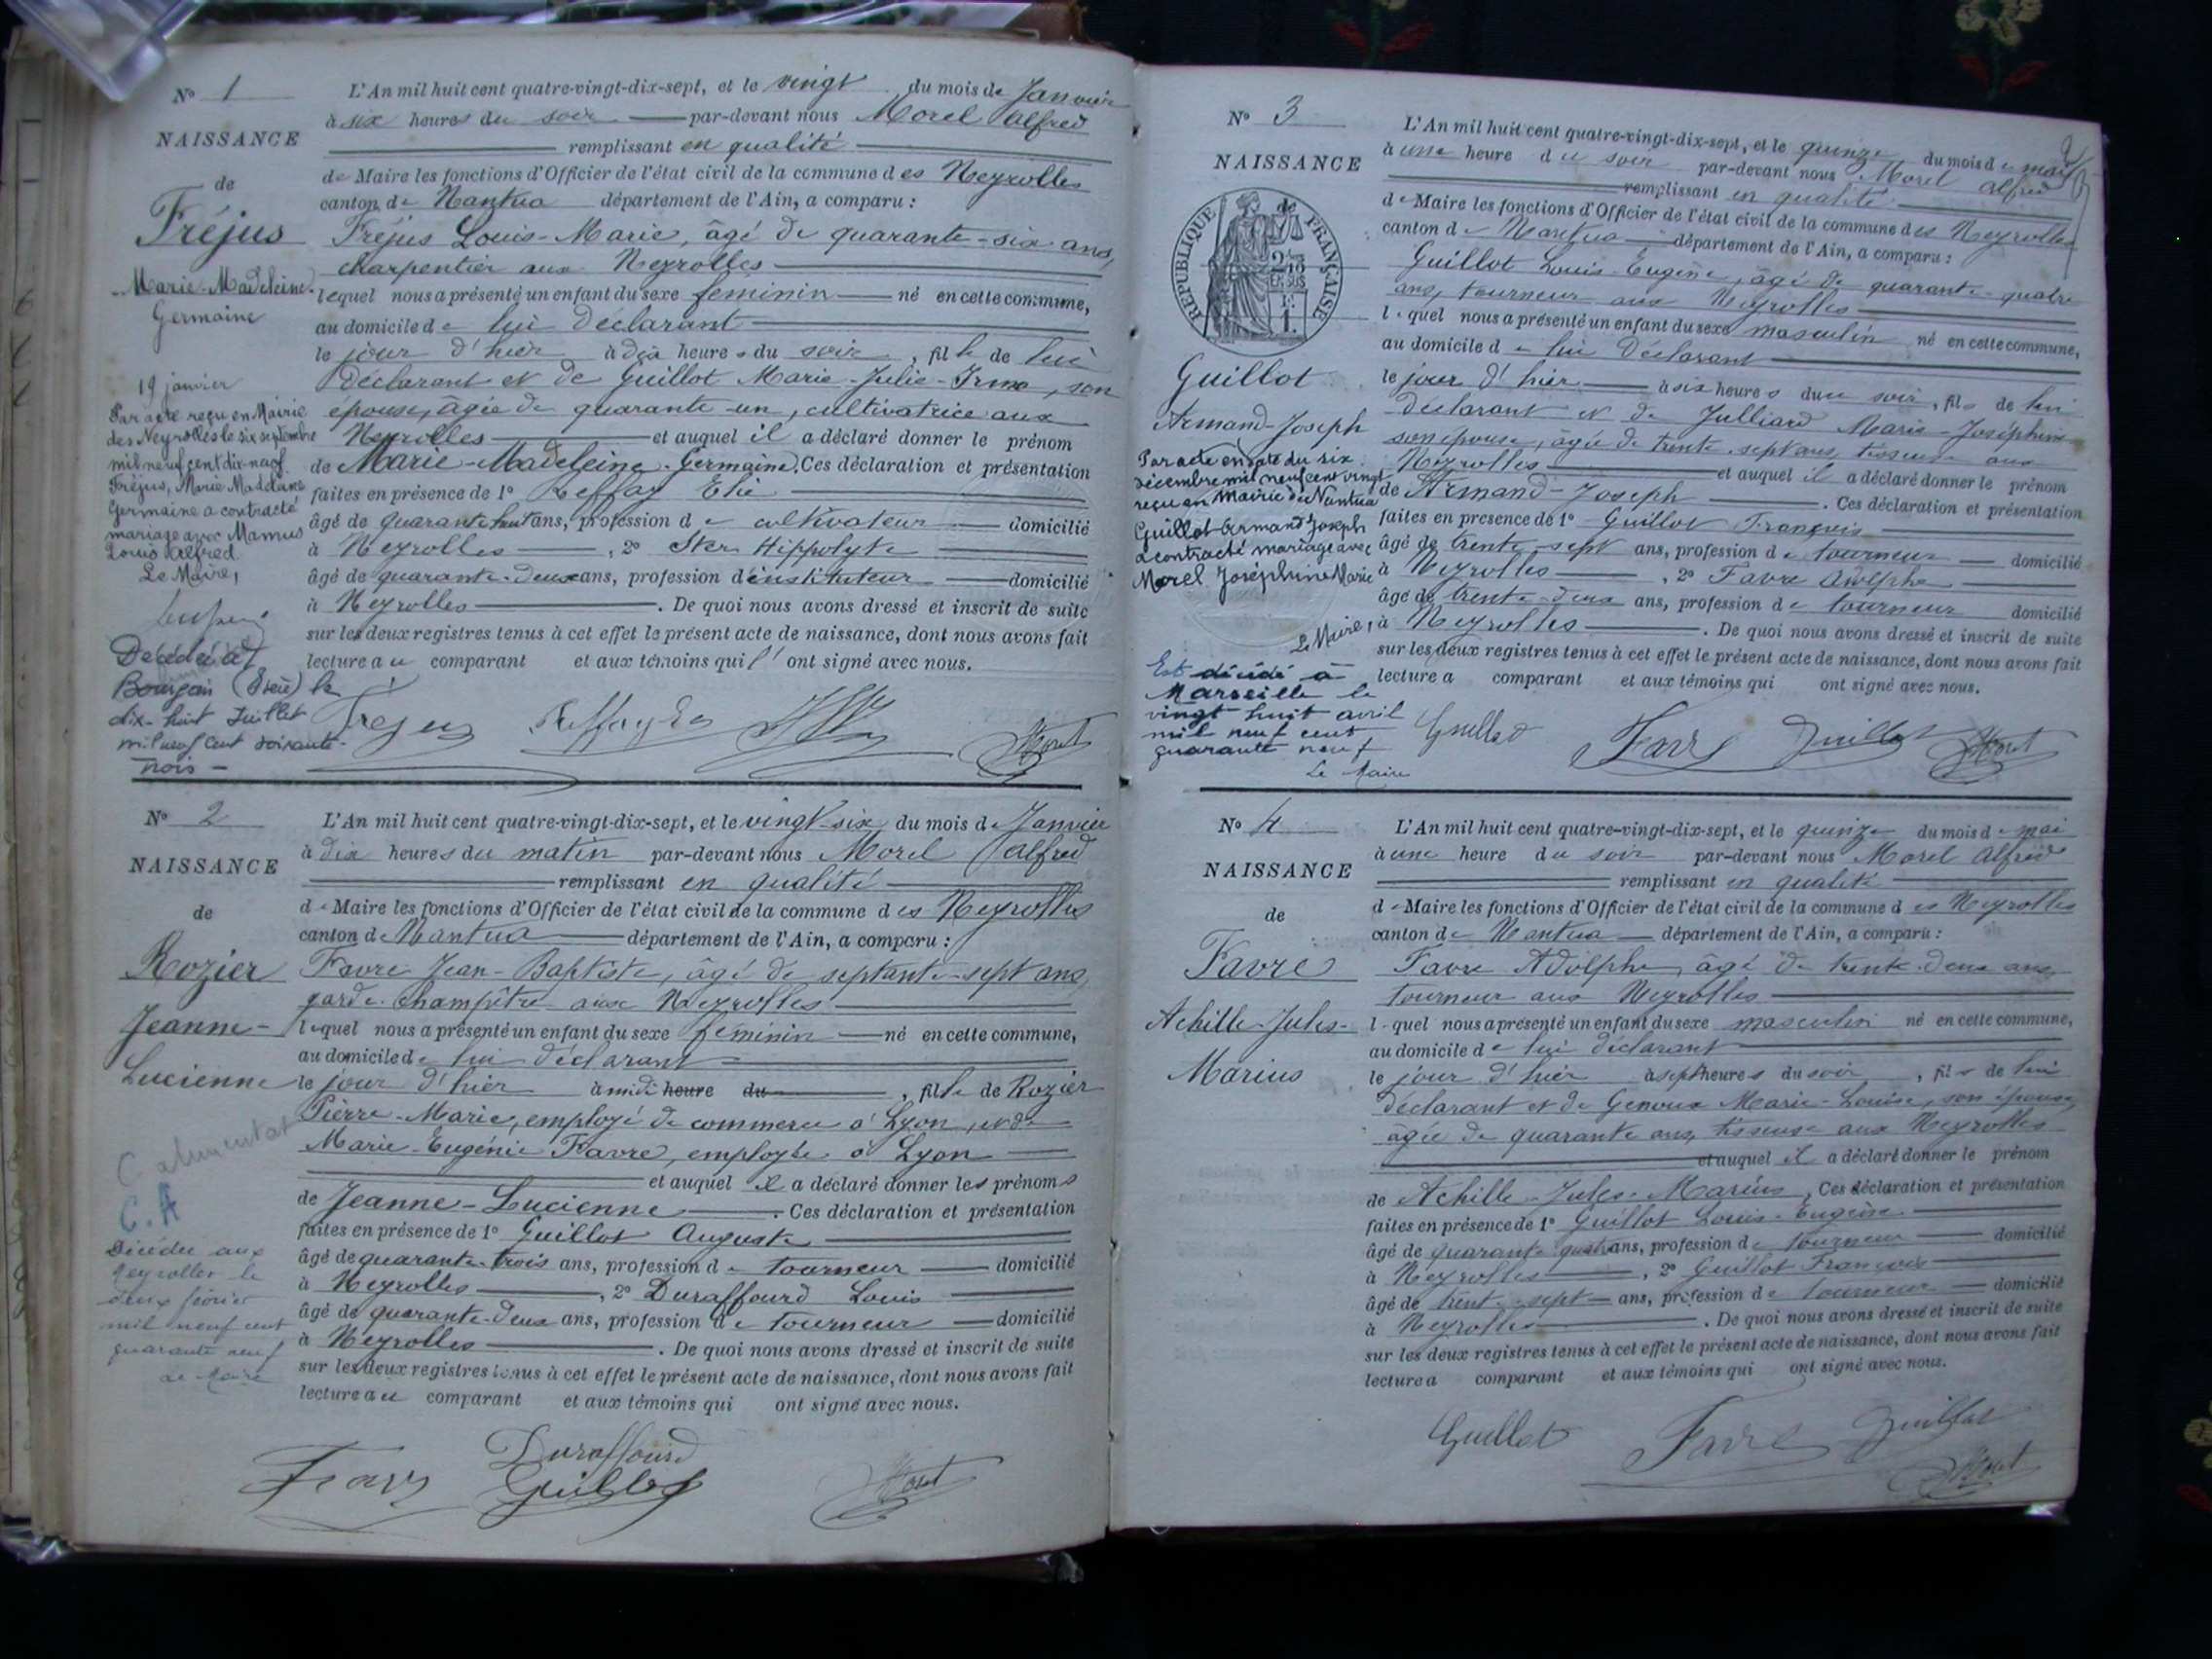 N° 1
NAISSANCE
de
Fréjus
Marie-Madeleine-
Germaine
19 janvier
Par acte reçu en Mairie
des Neyrolles le six septembre
mil neuf cent dix-neuf
Fréjus, Marie Madeleine
Germaine a contracté
mariage avec Mamus
Louis Alfred.
Le Maire,
Décédée à
Bourgoin (Isère) le
dix-huit Juillet
mil neuf cent soixante-
trois -
L'An mil huit cent quatre-vingt-dix-sept, et le vingt du mois de Janvier
à six heures du soir par-devant nous Morel Alfred
remplissant en qualité
de Maire les fonctions d'Officier de l'état civil de la commune des Neyrolles
canton de Nantua département de l'Ain, a comparu :
Fréjus Louis-Marie, âgé de quarante-six ans,
charpentier aux Neyrolles
lequel nous a présenté un enfant du sexe féminin né en cette commune,
au domicile de lui déclarant
le jour d'hier à dix heures du soir, fille de lui
déclarant et de Guillot Marie-Julie-Irma, son
épouse, âgée de quarante-un, cultivatrice aux
Neyrolles et auquel il a déclaré donner le prénom
de Marie-Madeleine-Germaine. Ces déclaration et présentation
faites en présence de 1° Reffay Elie
âgé de quarante huit ans, profession de cultivateur domicilié
à Neyrolles, 2° Hippolyte
âgé de quarante-deux ans, profession d'instituteur domicilié
à Neyrolles. De quoi nous avons dressé et inscrit de suite
sur les deux registres tenus à cet effet le présent acte de naissance, dont nous avons fait
lecture au comparant et aux témoins qui l' ont signé avec nous.
Fréjus Reffay Elie Morel
N° 2
NAISSANCE
de
Rozier
Jeanne-
Lucienne
C. A
Décédée aux
Neyrolles le
deux février
mil neuf cent
quarante neuf
Le Maire
L'An mil huit cent quatre-vingt-dix-sept, et le vingt-six du mois de Janvier
à dix heures du matin par-devant nous Morel Alfred
remplissant en qualité
de Maire les fonctions d'Officier de l'état civil de la commune des Neyrolles
canton de Nantua département de l'Ain, a comparu :
Favre Jean-Baptiste, âgé de septante-sept ans,
garde-champêtre aux Neyrolles
lequel nous a présenté un enfant du sexe féminin né en cette commune,
au domicile de lui déclarant
le jour d'hier à midi heure du, fille de Rozier
Pierre-Marie, employé de commerce à Lyon, et de
Marie-Eugénie Favre, employée à Lyon
et auquel il a déclaré donner les prénoms
de Jeanne-Lucienne. Ces déclaration et présentation
faites en présence de 1° Guillot Auguste
âgé de quarante-trois ans, profession de tourneur domicilié
à Neyrolles, 2° Duraffourd Louis
âgé de quarante-deux ans, profession de tourneur domicilié
à Neyrolles. De quoi nous avons dressé et inscrit de suite
sur les deux registres tenus à cet effet le présent acte de naissance, dont nous avons fait
lecture au comparant et aux témoins qui ont signé avec nous.
Duraffourd
Favre Guillot Morel
N° 3
NAISSANCE
RÉPUBLIQUE FRANÇAISE
Guillot
Armand-Joseph
Par acte en date du six
décembre mil neuf cent vingt
reçu en Mairie de Nantua
Guillot Armand Joseph
a contracté mariage avec
Morel Joséphine Marie
Le Maire,
Est décédé à
Marseille le
vingt huit avril
mil neuf cent
quarante neuf
Le Maire
L'An mil huit cent quatre-vingt-dix-sept, et le quinze du mois de mai
à une heure du soir par-devant nous Morel Alfred
remplissant en qualité
de Maire les fonctions d'Officier de l'état civil de la commune des Neyrolles
canton de Nantua département de l'Ain, a comparu :
Guillot Louis-Eugène, âgé de quarante-quatre
ans, tourneur aux Neyrolles
lequel nous a présenté un enfant du sexe masculin né en cette commune,
au domicile de lui déclarant
le jour d'hier à six heures du soir, fils de lui
déclarant et de Julliard Marie-Joséphine
son épouse, âgée de trente-sept ans, tisseuse aux
Neyrolles et auquel il a déclaré donner le prénom
de Armand-Joseph. Ces déclaration et présentation
faites en présence de 1° Guillot François
âgé de trente-sept ans, profession de tourneur domicilié
à Neyrolles, 2° Favre Adolphe
âgé de trente-deux ans, profession de tourneur domicilié
à Neyrolles. De quoi nous avons dressé et inscrit de suite
sur les deux registres tenus à cet effet le présent acte de naissance, dont nous avons fait
lecture a comparant et aux témoins qui ont signé avec nous.
Guillot Favre Guillot Morel
N° 4
NAISSANCE
de
Favre
Achille-Jules-
Marius
L'An mil huit cent quatre-vingt-dix-sept, et le quinze du mois de mai
à une heure du soir par-devant nous Morel Alfred
remplissant en qualité
de Maire les fonctions d'Officier de l'état civil de la commune des Neyrolles
canton de Nantua département de l'Ain, a comparu :
Favre Adolphe, âgé de trente-deux ans,
tourneur aux Neyrolles
lequel nous a présenté un enfant du sexe masculin né en cette commune,
au domicile de lui déclarant
le jour d'hier à sept heures du soir, fils de lui
déclarant et de Genoux Marie-Louise, son épouse,
âgée de quarante ans, tisseuse aux Neyrolles
et auquel il a déclaré donner le prénom
de Achille-Jules-Marius, Ces déclaration et présentation
faites en présence de 1° Guillot Louis-Eugène
âgé de quarante-quatre ans, profession de tourneur domicilié
à Neyrolles, 2° Guillot François
âgé de trente-sept ans, profession de tourneur domicilié
à Neyrolles. De quoi nous avons dressé et inscrit de suite
sur les deux registres tenus à cet effet le présent acte de naissance, dont nous avons fait
lecture a comparant et aux témoins qui ont signé avec nous.
Guillot Favre Guillot
Morel